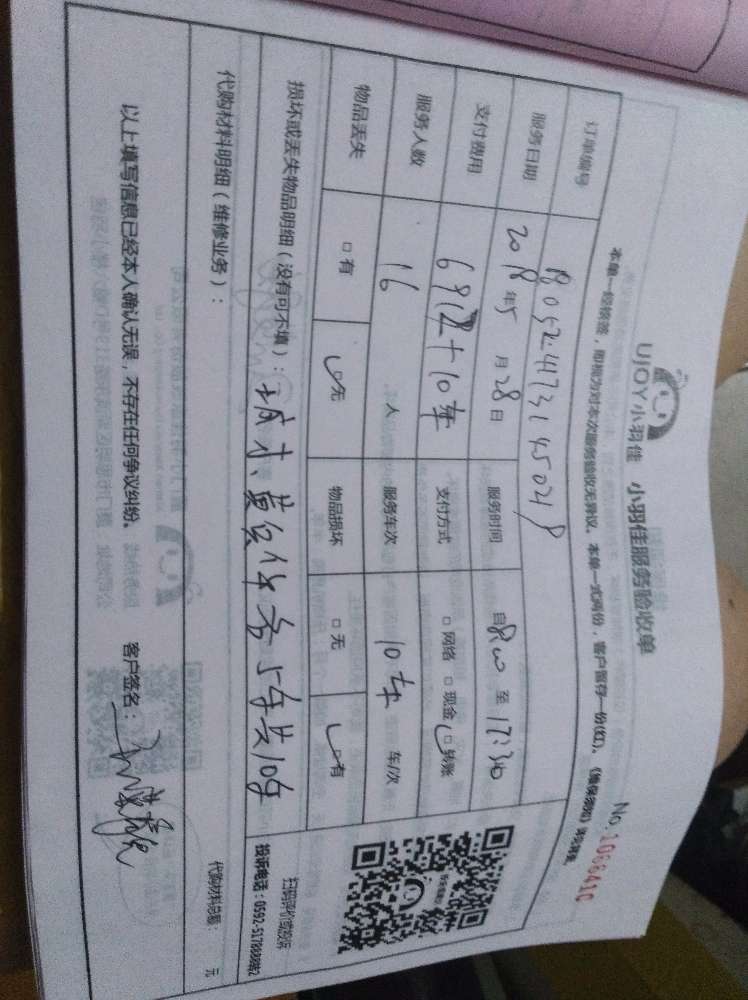 UJOY小羽佳 小羽佳服务验收单
No.1066410
本单一经核签，即视为对本次服务验收无异议。本单一式两份，客户留存一份(红)。
订单编号 18052147314504
服务日期 2018年5月28日 服务时间 自8:00至17:30
支付费用 支付方式 □网络 □现金 □转账
服务人数 16人 服务车次 10车 车/次
物品丢失 □有 □无 物品损坏 □无 □有
损坏或丢失物品明细（没有可不填）：
代购材料明细（维修业务）：
代购材料总额： 元
扫码评价或投诉
投诉电话：0592-5178888转2
以上填写信息已经本人确认无误，不存在任何争议纠纷。 客户签名：